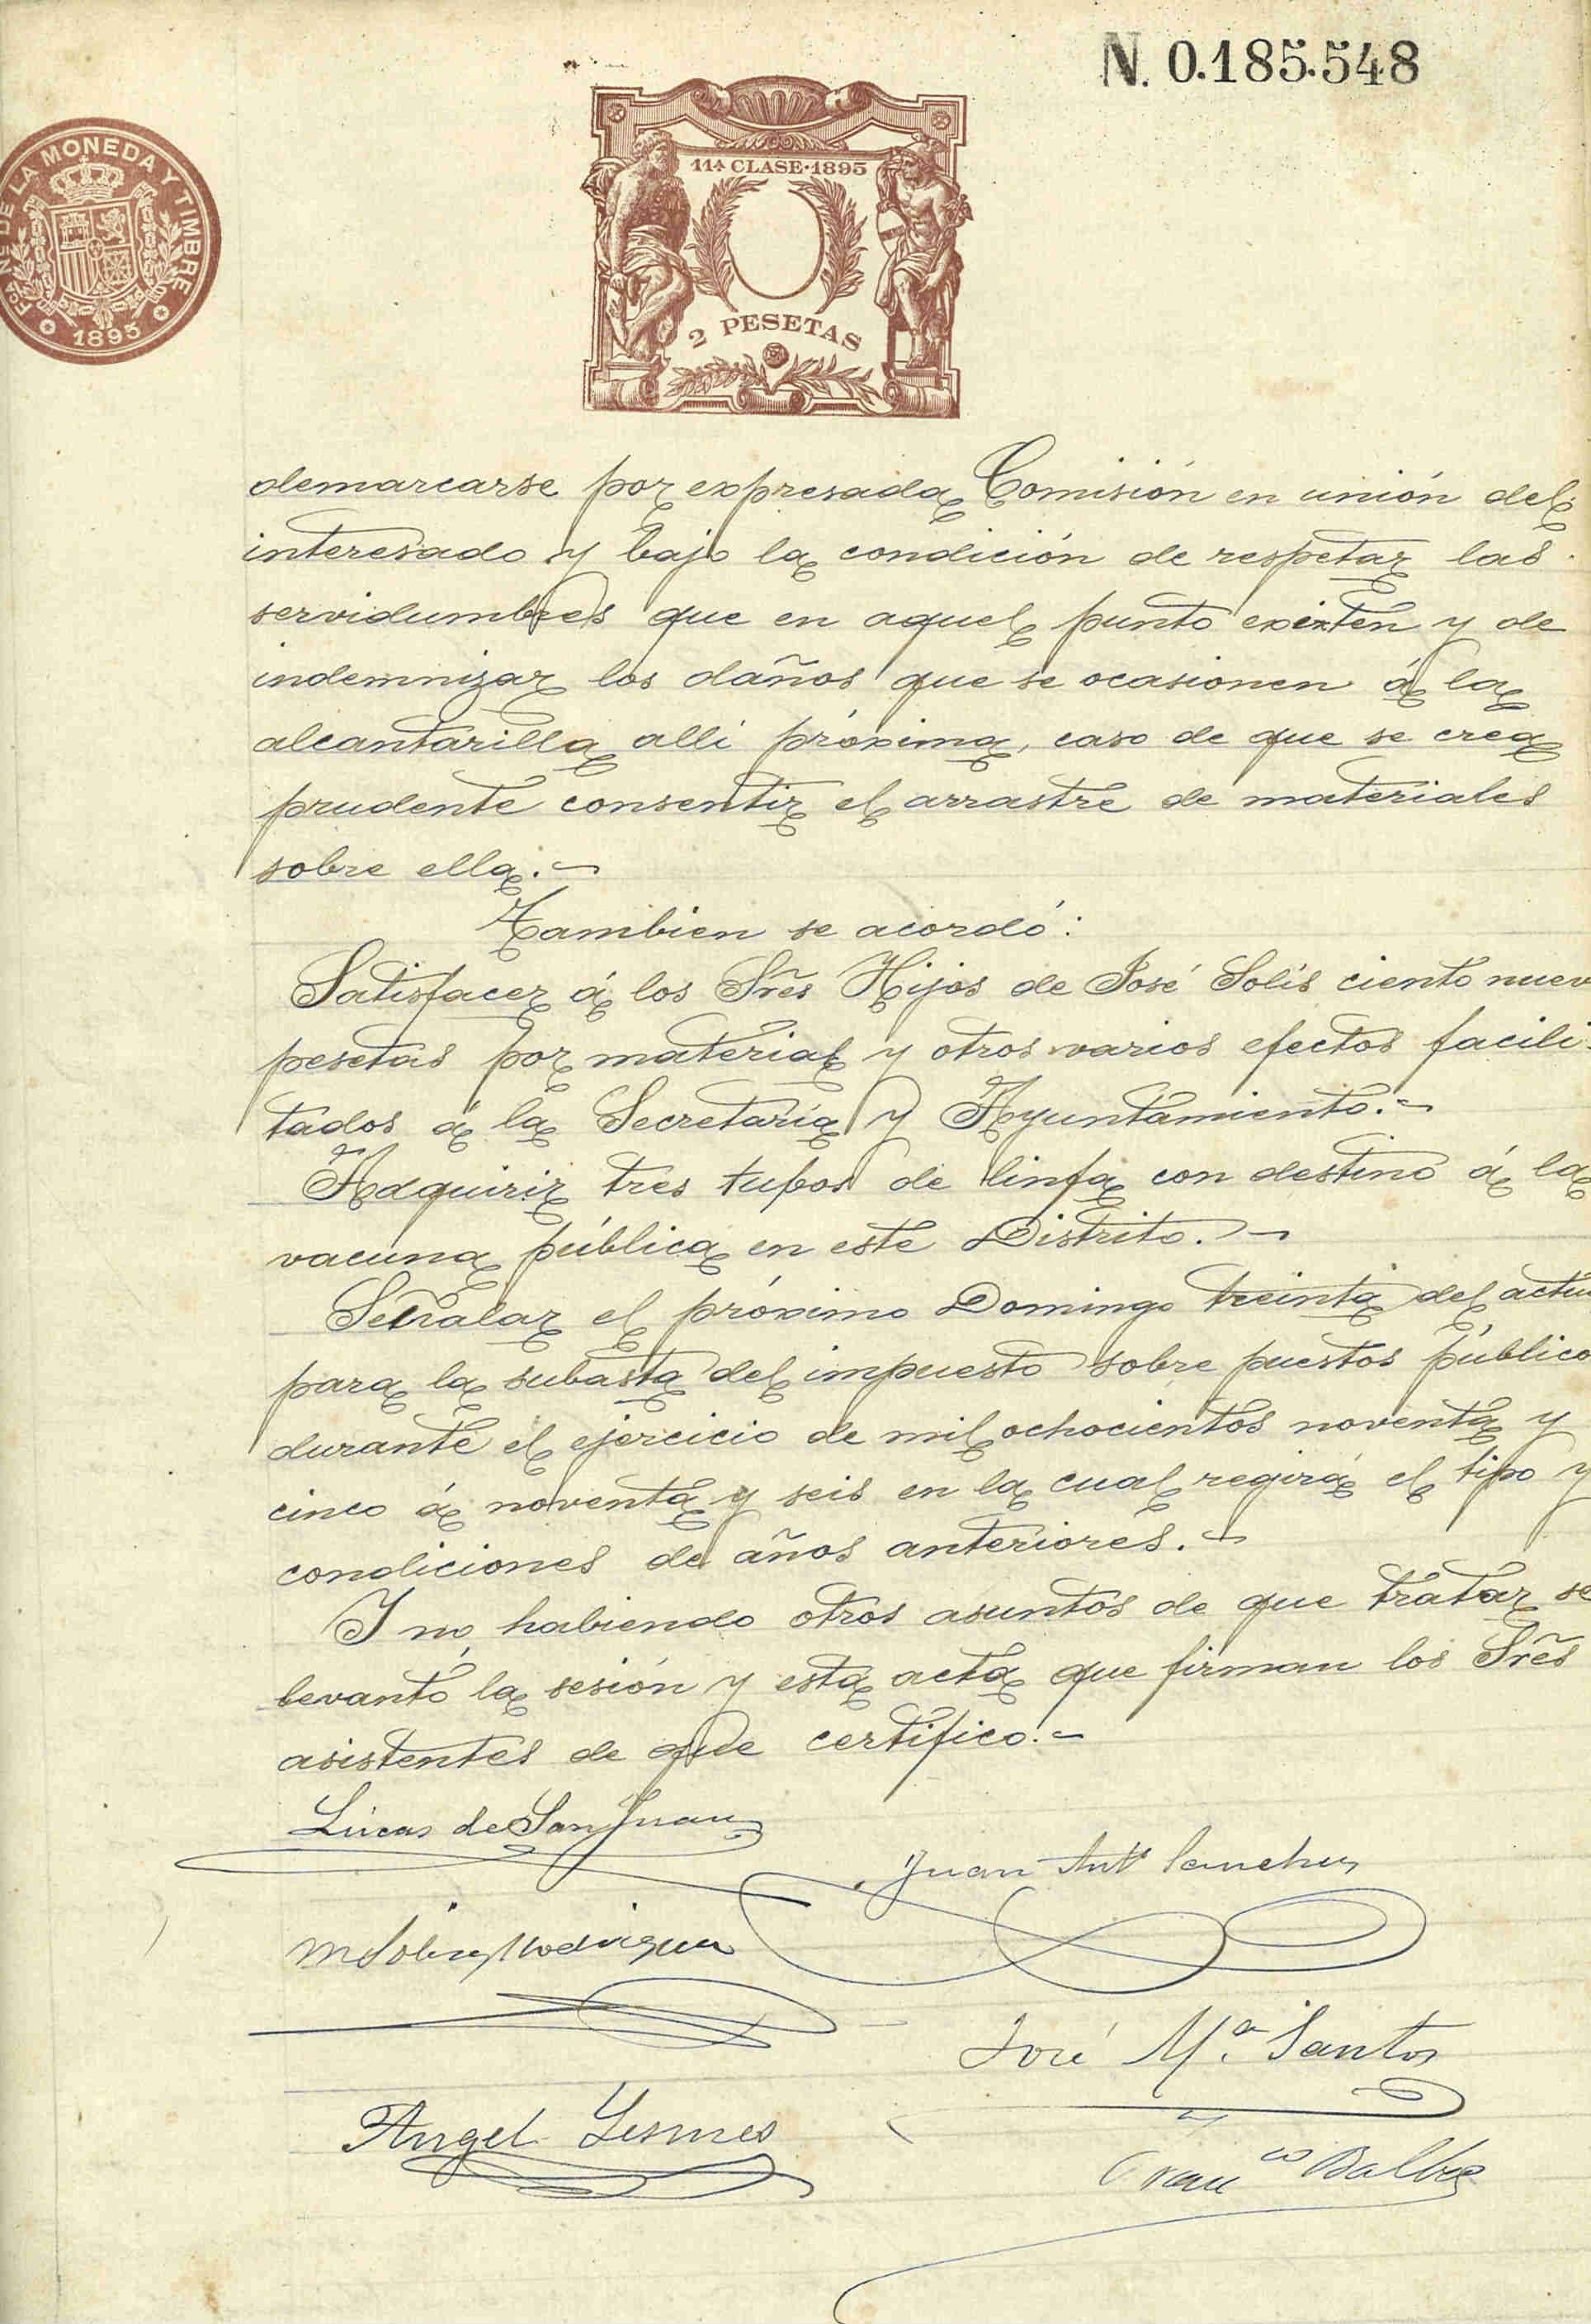 N. 0.185.548
FCA. NAL. DE LA MONEDA Y TIMBRE
1895
11ª CLASE·1895
2 PESETAS
demarcarse por expresada Comisión en unión del
interesado y bajo la condición de respetar las
servidumbres que en aquel punto existen y de
indemnizar los daños que se ocasionen á la
alcantarilla alli próxima, caso de que se crea
prudente consentir el arrastre de materiales
sobre ella.-
Tambien se acordó:
Satisfacer á los Srẽs Hijos de José Solís ciento nuev
pesetas por material y otros varios efectos facili-
tados á la Secretaría y Ayuntamiento.-
Adquirir tres tubos de linfa con destino á la
vacuna pública en este Distrito.-
Señalar el próximo Domingo treinta del actu
para la subasta del impuesto sobre puestos público
durante el ejercicio de mil ochocientos noventa y
cinco á noventa y seis en la cual regirá el tipo y
condiciones de años anteriores.-
Y no habiendo otros asuntos de que tratar se
levantó la sesión y esta acta que firman los Srẽs
asistentes de que certifico.-
Lúcas de San Juan
Juan Antº Sanchez
Rodriguez
José Mª. Santos
Angel Lesmes
Franco Balbas